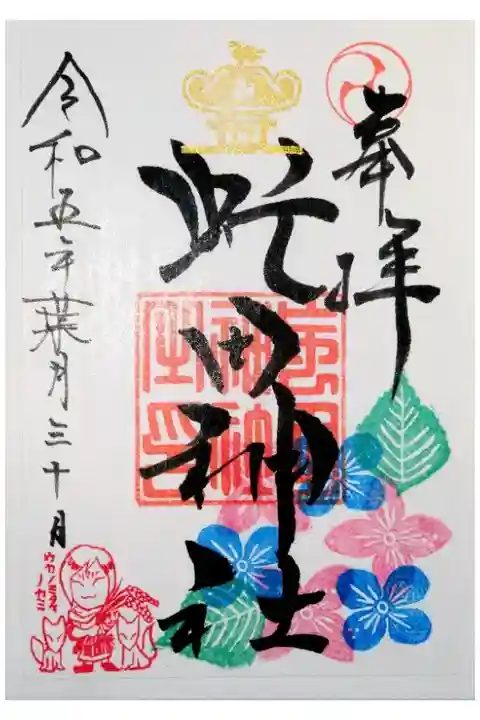 奉拝
虻田神社
令和五年葉月三十日
ウカノミタマ
ノカミ